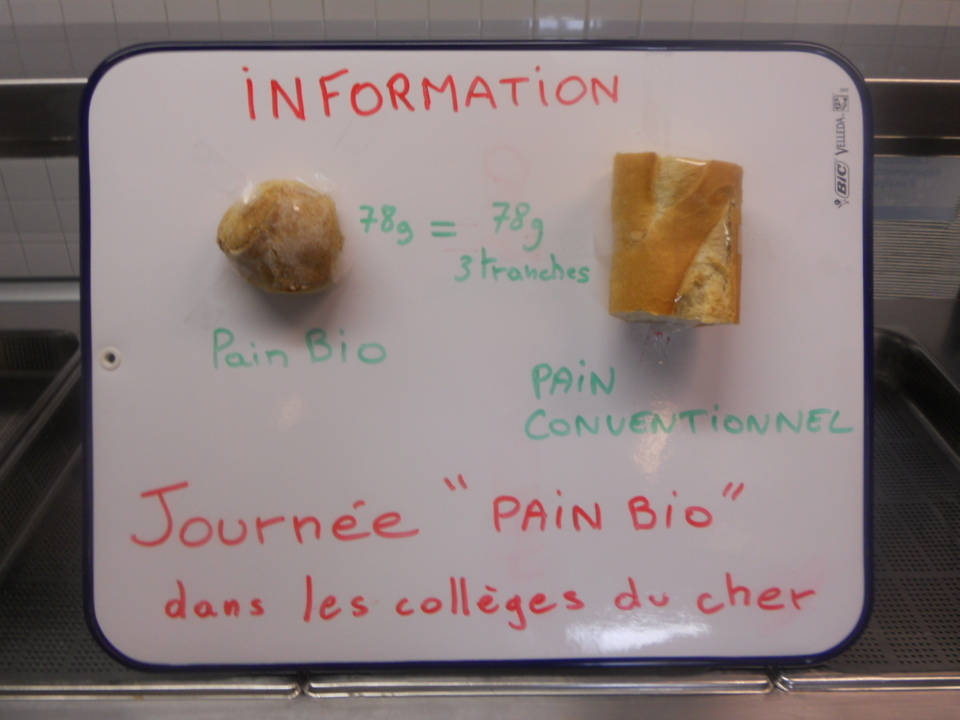 iNFORMATiON
78g = 78g
3 tranches
Pain Bio
PAiN
CONVENTiONNEL
Journée "PAiN Bio"
dans les collèges du cher
BIC VELLEDA